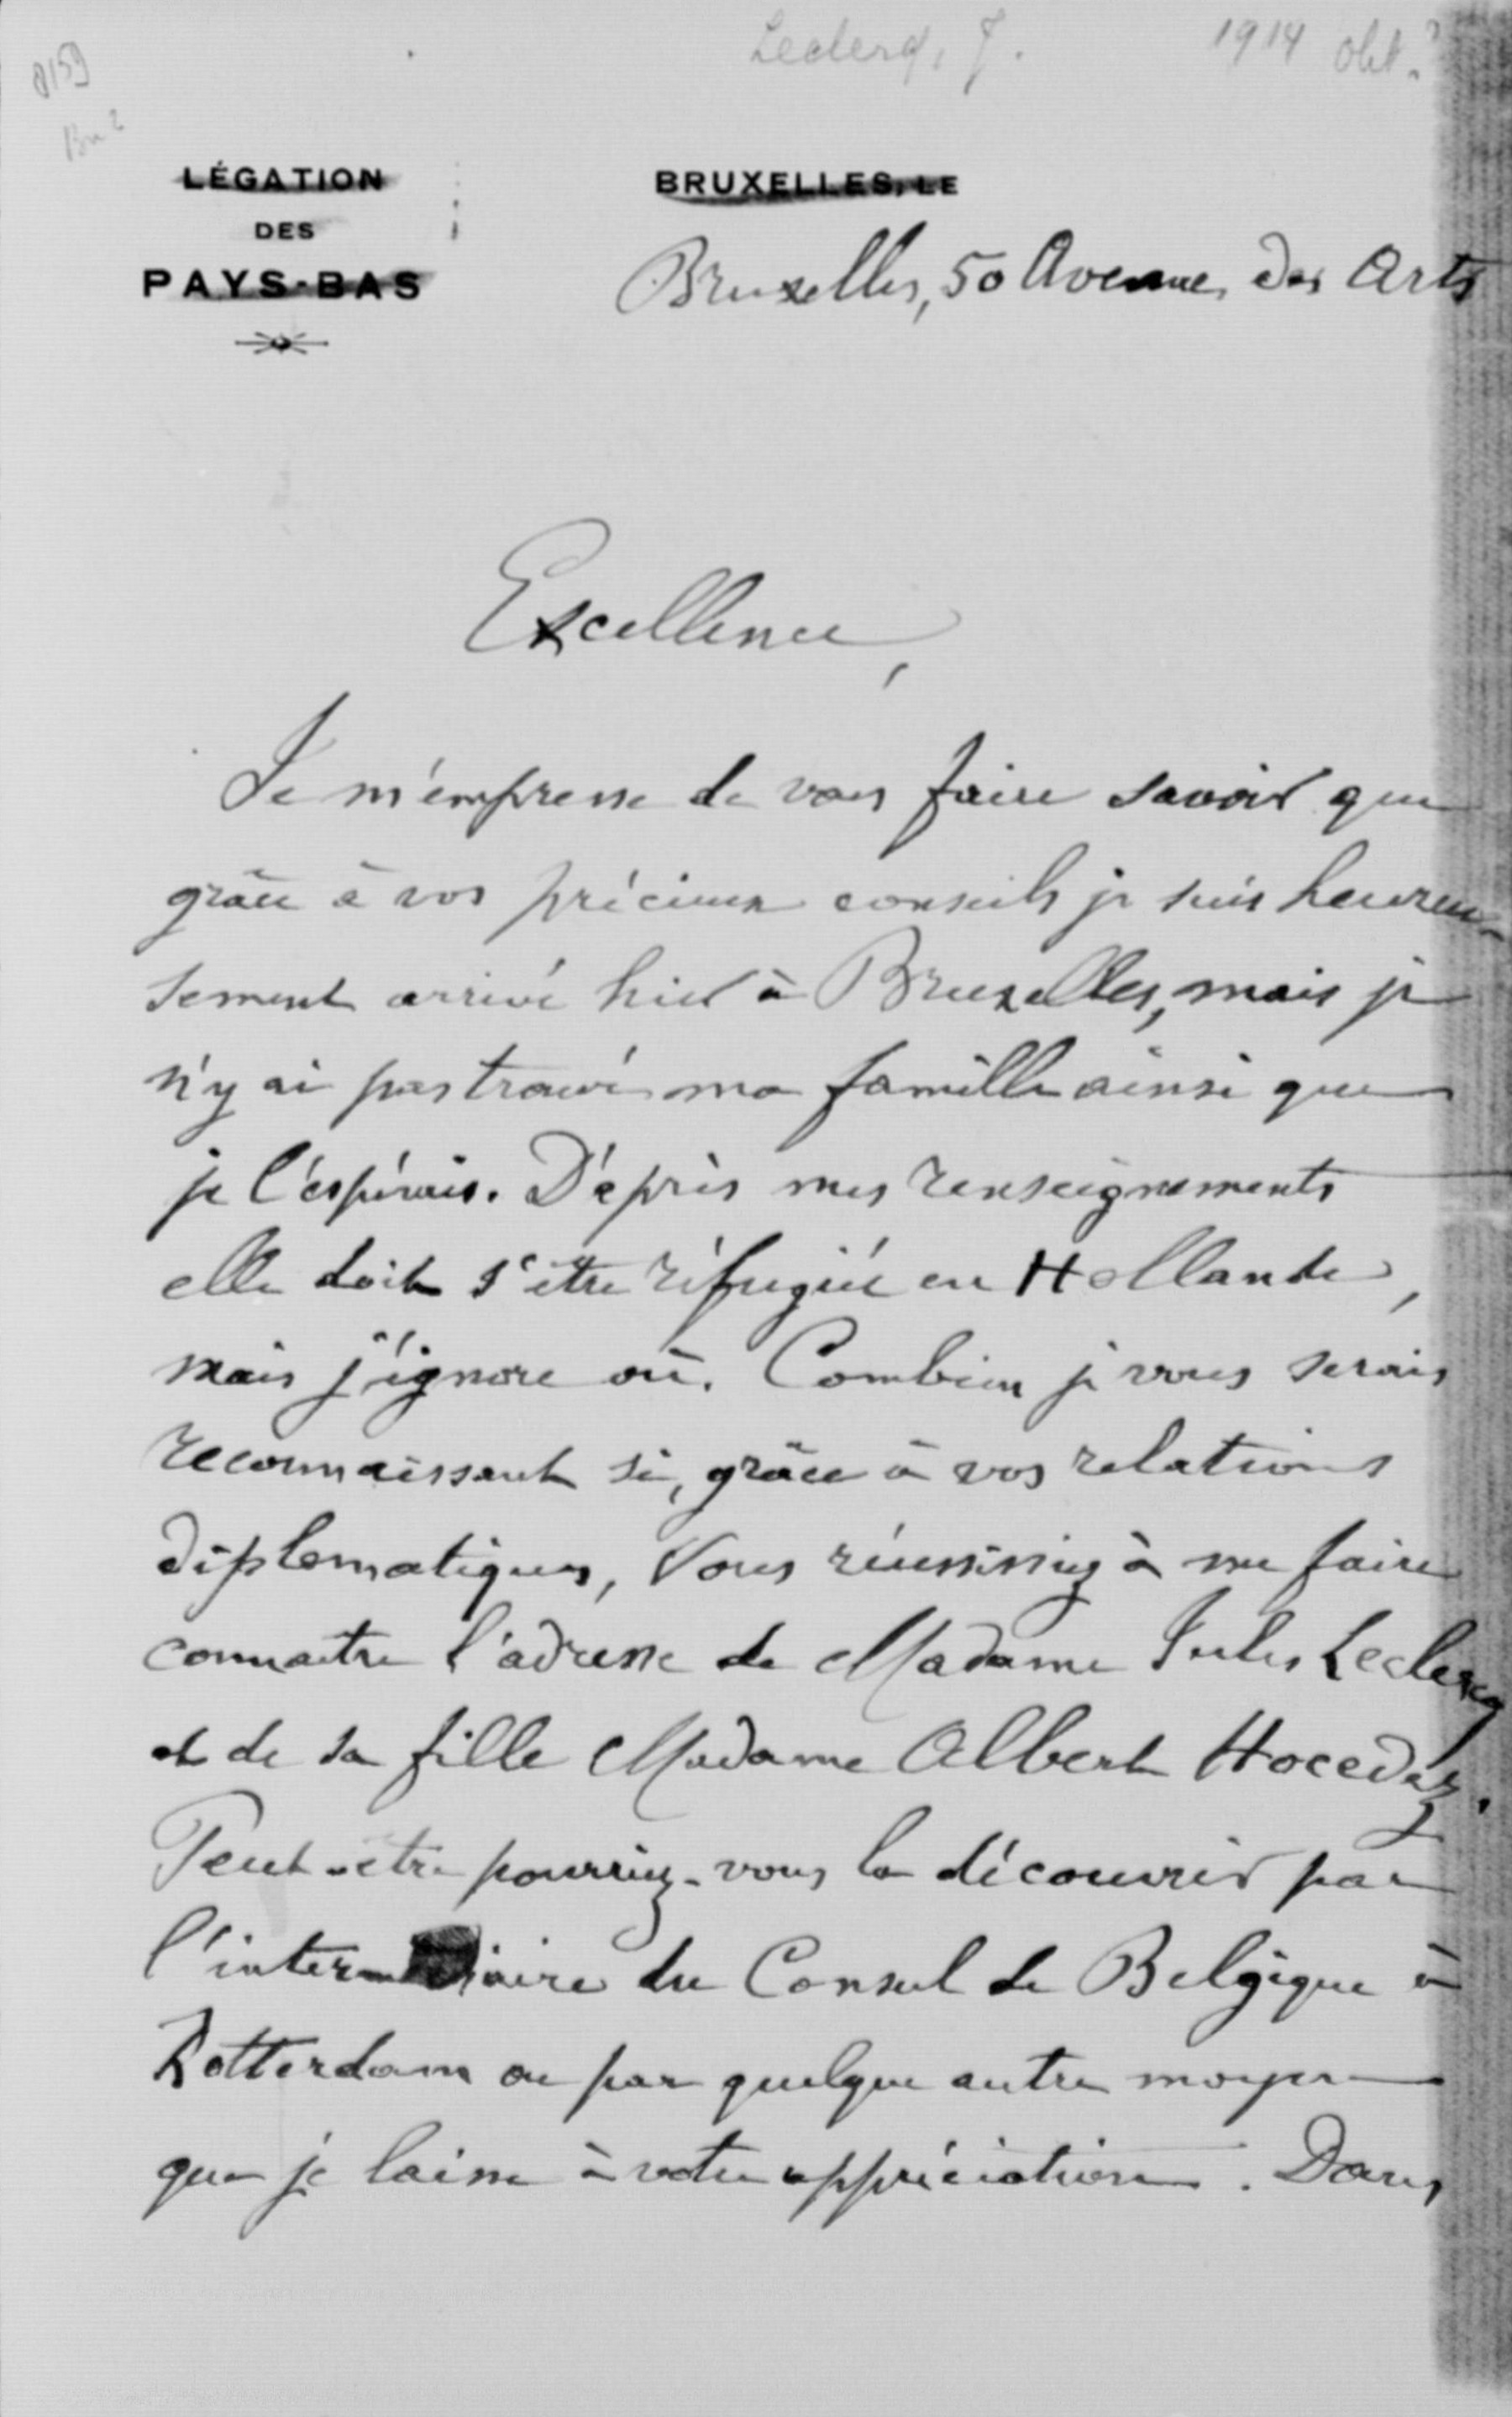 Leclercq, J. 1914 okt.?
LÉGATION
DES
PAYS-BAS
BRUXELLES, LE
Bruxelles, 50 Avenue des Arts
Excellence,
Je m'empresse de vous faire savoir que
grâce à vos précieux conseils je suis heureu-
sement arrivé hier à Bruxelles, mais je
n'y ai pas trouvé ma famille ainsi que
je l'espérais. D'après mes renseignements
elle doit s'être réfugiée en Hollande,
mais j'ignore où. Combien je vous serais
reconnaissant si, grâce à vos relations
diplomatiques, Vous réussissiez à me faire
connaitre l'adresse de Madame Jules Leclercq
et de sa fille Madame Albert Hocedez.
Peut-être pourriez-vous la découvrir par
l'intermédiaire du Consul de Belgique à
Rotterdam ou par quelque autre moyen
que je laisse à votre appréciation. Dans